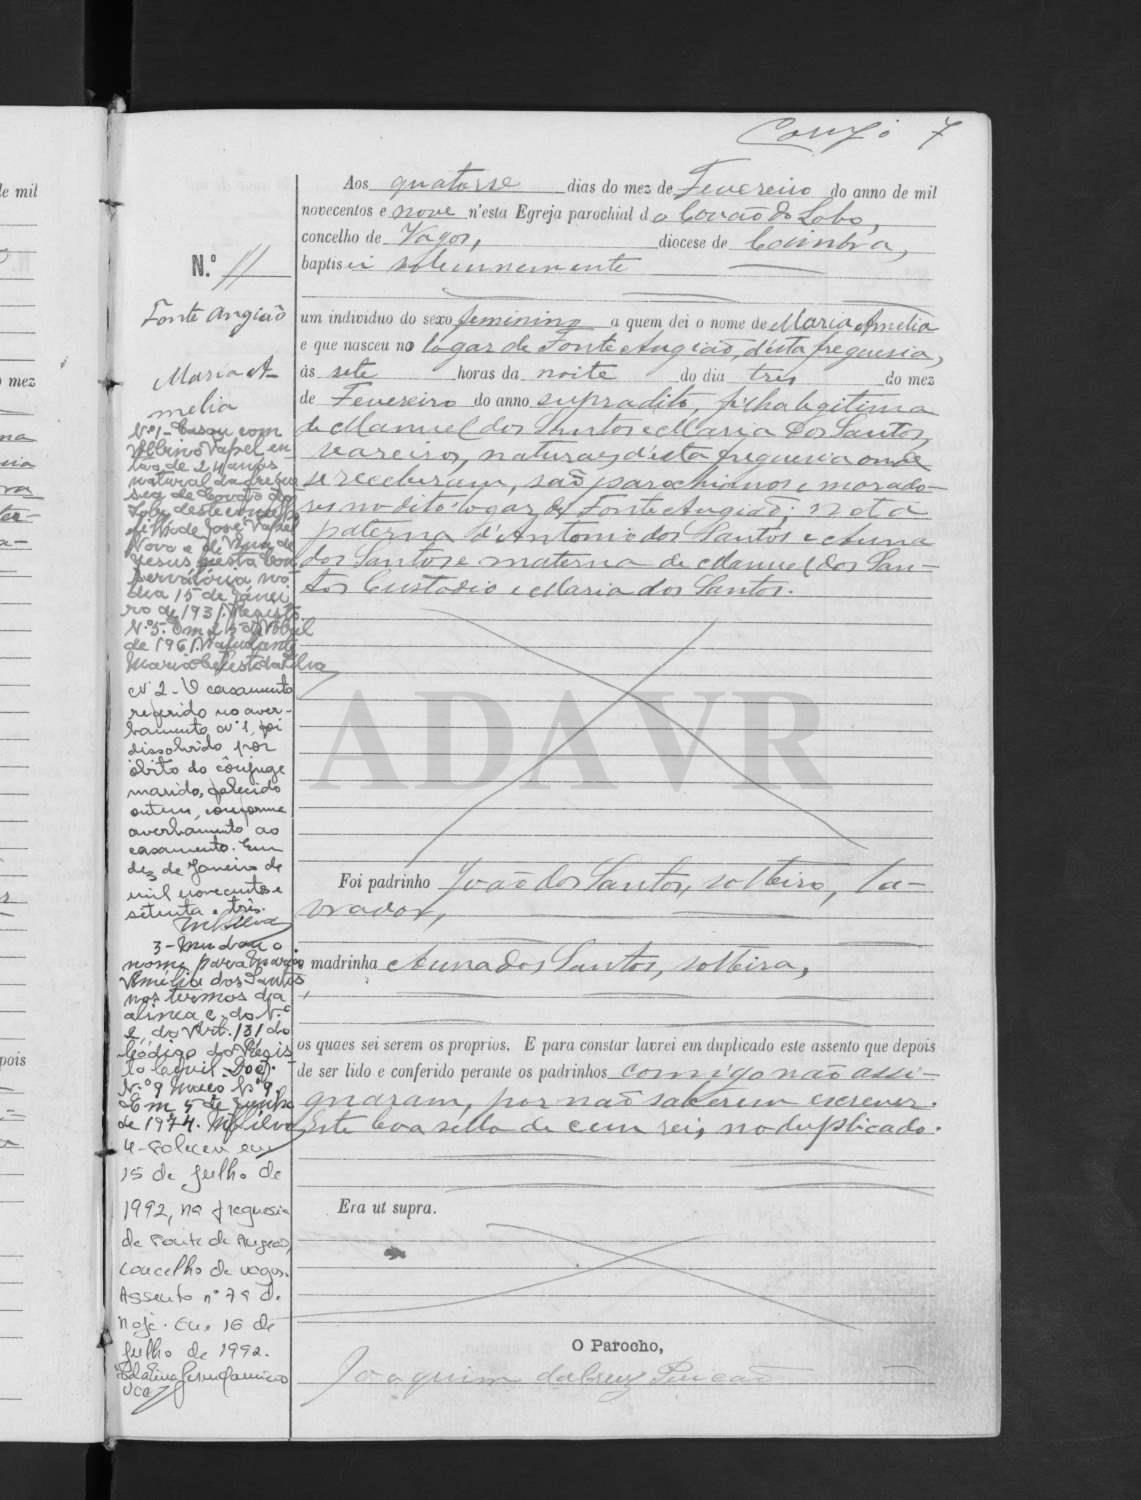 7
Aos quatorse dias do mez de Fevereiro do anno de mil
novecentos e nove n'esta Egreja parochial do Covão do Lobo,
concelho de Vagos, diocese de Coimbra,
baptisei solemnemente
um individuo do sexo feminino a quem dei o nome de Maria Amelia
e que nasceu no logar de Fonte Angião, d'esta freguesia,
ás sete horas da noite do dia tres do mez
de Fevereiro do anno supradito, filha legitima
de Manuel dos Santos e Maria dos Santos,
naturaes d'esta freguesia onde
se receberam, são parochianos e morado-
res no dito logar de Fonte Angião; neta
paterna d'Antonio dos Santos e Anna
dos Santos e materna de Manuel dos San-
tos Custodio e Maria dos Santos.
Foi padrinho João dos Santos, solteiro, la-
vrador,
e madrinha Anna dos Santos, solteira,
os quaes sei serem os proprios. E para constar lavrei em duplicado este assento que depois
de ser lido e conferido perante os padrinhos comigo não assi-
gnaram, por não saberem escrever.
Este leva sello de cem reis, no duplicado.
Era ut supra.
O Parocho,
Joaquim
N.º 11
Fonte Angião
Maria A-
melia
Nº 1 - Casou com
Albino en
tão de 2 anos
natural da fregue
sia de Covão do
Lobo deste concelho
filho de José
Novo e de de
Jesus nesta Con
servatória no
dia 15 de Janei
ro de 1931. Registo
N.º 5. Em 25 de Abril
de 1961. A ajudante
Maria Celeste da Silva
Nº 2 - O casamento
referido no aver-
bamento nº 1, foi
dissolvido por
óbito do cônjuge
marido, falecido
ontem, conforme
averbamento ao
casamento. Em
dez de Janeiro de
mil novecentos e
setenta e três.
MCSilva
3 - Mudou o
nome para Maria
Amélia dos Santos
nos termos da
alínea e, do N.º
2 do Art. 131 do
Código do Regis
to Civil. Doc.
N.º 9 Maço Nº 9.
Em 5 de Junho
de 1974. MCSilva
4 - Faleceu em
15 de Julho de
1992, na freguesia
de Fonte de Angeão,
concelho de Vagos.
Assento nº 79 de
hoje. Em, 16 de
Julho de 1992.
ADAVR
de mil
o mez
depois